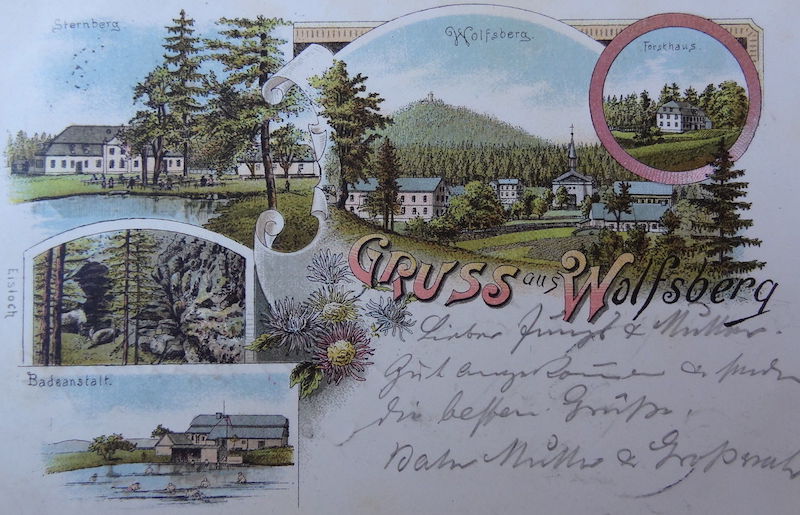 Sternberg
Wolfsberg.
Forsthaus.
Eisloch
Badeanstalt.
GRUSS aus Wolfsberg
Lieber Jungs & Mutter.
Gut angekommen &
die besten Grüße,
Vater Mutter &